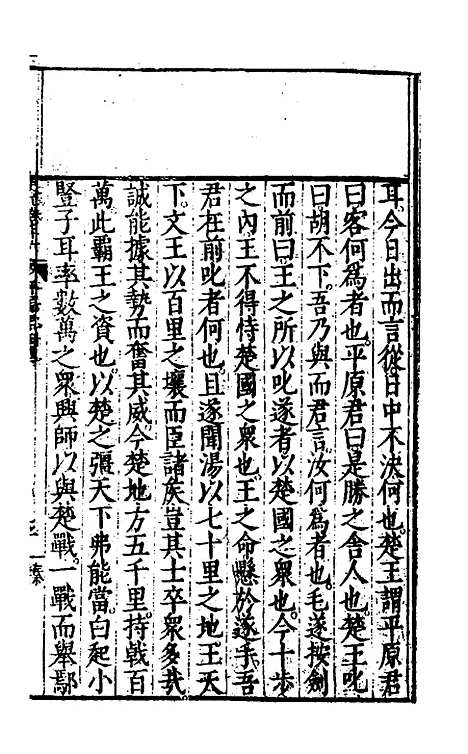 耳今日出而言從日中不決何也楚王謂平原君
曰客何爲者也平原君曰是勝之舍人也楚王叱
曰胡不下吾乃與而君言汝何爲者也毛遂按劍
而前曰王之所以叱遂者以楚國之衆也今十步
之內王不得恃楚國之衆也王之命懸於遂手吾
君在前叱者何也且遂聞湯以七十里之地王天
下文王以百里之壤而臣諸矦豈其士卒衆多哉
誠能據其勢而奮其威今楚地方五千里持戟百
萬此霸王之資也以楚之彊天下弗能當白起小
豎子耳率數萬之衆興師以與楚戰一戰而舉鄢